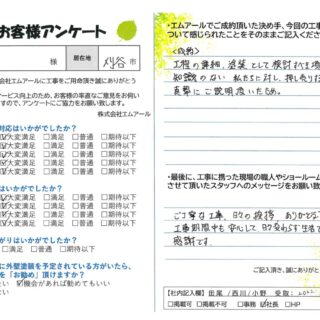 お客様アンケート
様 居在地 刈谷 市
株式会社エムアールに工事をご用命頂き誠にありがとう
サービス向上のため、お客様の率直なご意見をお伺い
ますので、アンケートにご協力をお願い致します。
株式会社エムアール
対応はいかがでしたか?
大変満足 □満足 □普通 □期待以下
大変満足 □満足 □普通 □期待以下
大変満足 □満足 □普通 □期待以下
大変満足 □満足 □普通 □期待以下
はいかがでしたか?
大変満足 □満足 □普通 □期待以下
大変満足 □満足 □普通 □期待以下
がりはいかがでしたか?
足 □満足 □普通 □期待以下
に外壁塗装を予定されている方がいたら、
を「お勧め」頂けますか?
い ☑機会があれば勧めてもいい
ない
・エムアールでご成約頂いた決め手、今回の工事
ついて感じられたことをそのままご記入ください
工程の詳細、塗装として検討すべき項
知識のない私たちに対し、押し売り
真摯にご説明頂いたため。
・最後に、工事に携った現場の職人やショールーム
させて頂いたスタッフへのメッセージをお願い致
ご丁寧な工事、日々の挨拶、ありがとう
工事期間中も安心して日々変わらず生活で
感謝です。
ご記入頂き、誠にありがと
【社内記入欄】田尾 / 西川 / 小野 受取: 2022
□掲載可 □掲載不可 □事務 ☑社長 □HP